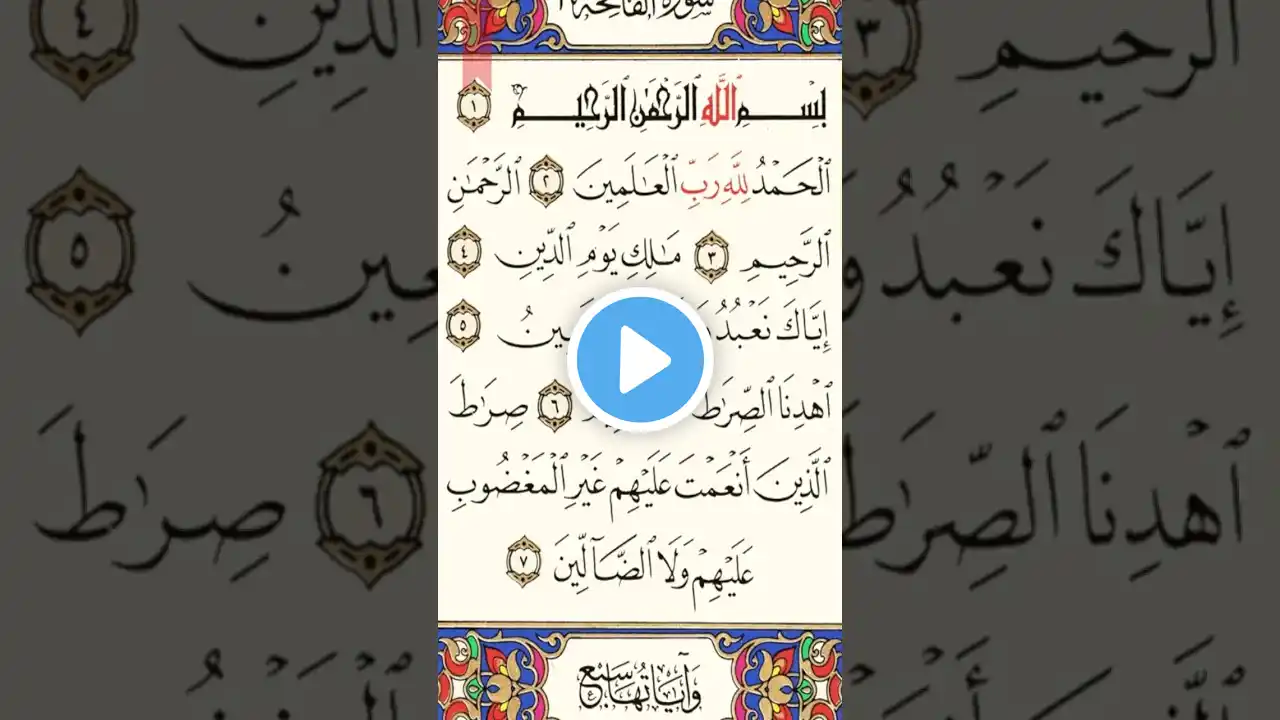 سورة الفاتحة ١
بِسْمِ ٱللَّهِ ٱلرَّحْمَٰنِ ٱلرَّحِيمِ ١
ٱلْحَمْدُ لِلَّهِ رَبِّ ٱلْعَٰلَمِينَ ٢ ٱلرَّحْمَٰنِ
ٱلرَّحِيمِ ٣ مَٰلِكِ يَوْمِ ٱلدِّينِ ٤
إِيَّاكَ نَعْبُدُ ٥
ٱهْدِنَا ٱلصِّرَٰطَ ٦ صِرَٰطَ
ٱلَّذِينَ أَنْعَمْتَ عَلَيْهِمْ غَيْرِ ٱلْمَغْضُوبِ
عَلَيْهِمْ وَلَا ٱلضَّآلِّينَ ٧
وَآيَاتُهَا سَبْعٌ
ٱلرَّحِيمِ ٣ ٱلدِّينِ ٤
إِيَّاكَ نَعْبُدُ ٥
ٱهْدِنَا ٱلصِّرَٰطَ ٦ صِرَٰطَ